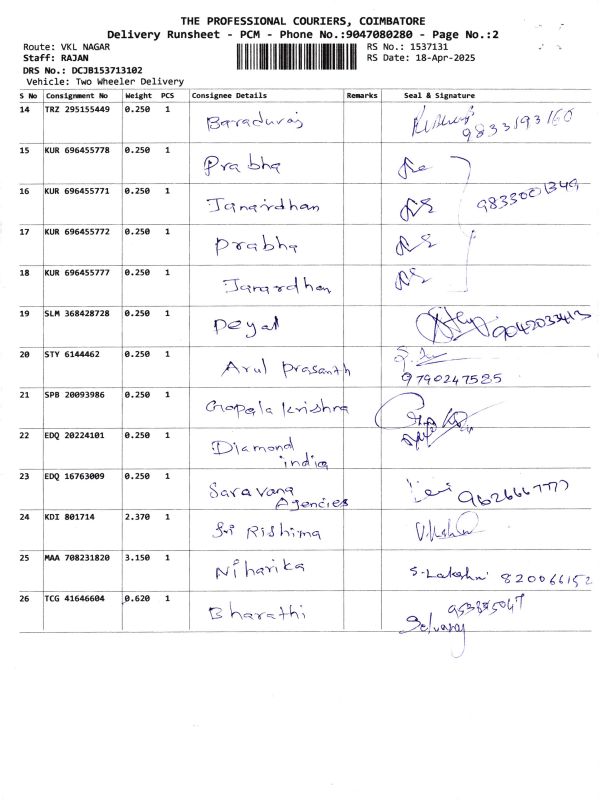 THE PROFESSIONAL COURIERS, COIMBATORE
Delivery Runsheet - PCM - Phone No.:9047080280 - Page No.:2
Route: VKL NAGAR RS No.: 1537131
Staff: RAJAN RS Date: 18-Apr-2025
DRS No.: DCJB153713102
Vehicle: Two Wheeler Delivery
S No Consignment No Weight PCS Consignee Details Remarks Seal & Signature
14 TRZ 295155449 0.250 1 Baraduraj 9833193160
15 KUR 696455778 0.250 1 Prabha
16 KUR 696455771 0.250 1 Janardhan 9833001349
17 KUR 696455772 0.250 1 Prabha
18 KUR 696455777 0.250 1 Janardhan
19 SLM 368428728 0.250 1 Deyal 9042033413
20 STY 6144462 0.250 1 Arul Prasanth
9790247585
21 SPB 20093986 0.250 1 Gopala Krishna
22 EDQ 20224101 0.250 1 Diamond
india
23 EDQ 16763009 0.250 1 Saravana
Agencies
24 KDI 801714 2.370 1 Sri Rishima
25 MAA 708231820 3.150 1 Niharika S-Lakshmi 820066152
26 TCG 41646604 0.620 1 Bharathi
Selvaraj